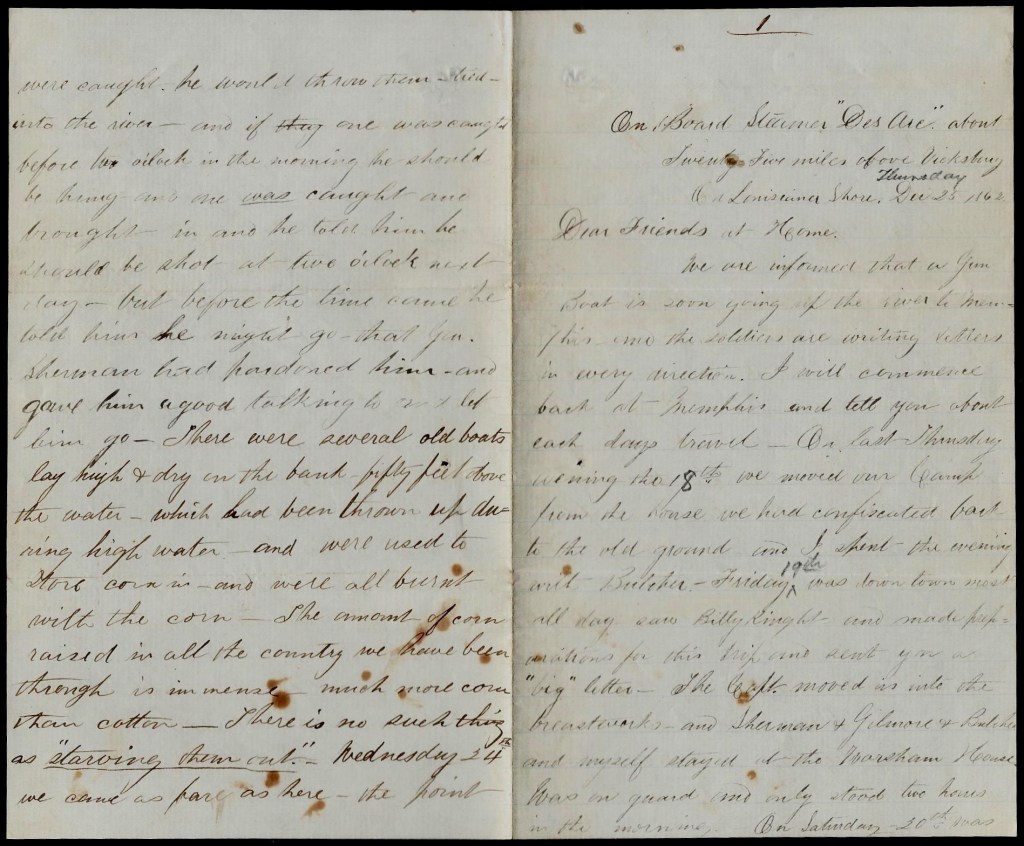 were caught. he would throw them - tied -
into the river - and if they one was caught
before two o'clock in the morning he should
be hung - and one was caught and
brought in and he told him he
should be shot at two o'clock next
day - but before the time came he
told him he might go - that Gen.
Sherman had pardoned him - and
gave him a good talking to and let
him go - There were several old boats
lay high & dry on the bank - fifty feet above
the water - which had been thrown up du-
ring high water - and were used to
store corn in - and were all burnt
with the corn - The amount of corn
raised in all the country we have been
through is immense - much more corn
than cotton - There is no such thing
as "starving them out." - Wednesday 24th
we came as fare as here - the point
1
On Board Steamer "Des Arc" about
Twenty Five miles above Vicksburg
On Louisiana Shore. Thursday Dec 25 1862
Dear Friends at Home.
We are informed that a Gun
Boat is soon going up the river to Mem-
phis and the soldiers are writing letters
in every direction. I will commence
back at Memphis and tell you about
each days travel - On last Thursday
evening the 18th we moved our Camp
from the house we had confiscated back
to the old ground and I spent the evening
with Butcher - Friday 19th was down town most
all day saw Billy Knight and made prep-
arations for this trip and sent you a
"big" letter - The Capt. moved us into the
breastworks - and Sherman & Gilmore & Butcher
and myself stayed at the Worsham House.
Was on guard and only stood two hours
in the morning. On Saturday - 20th was